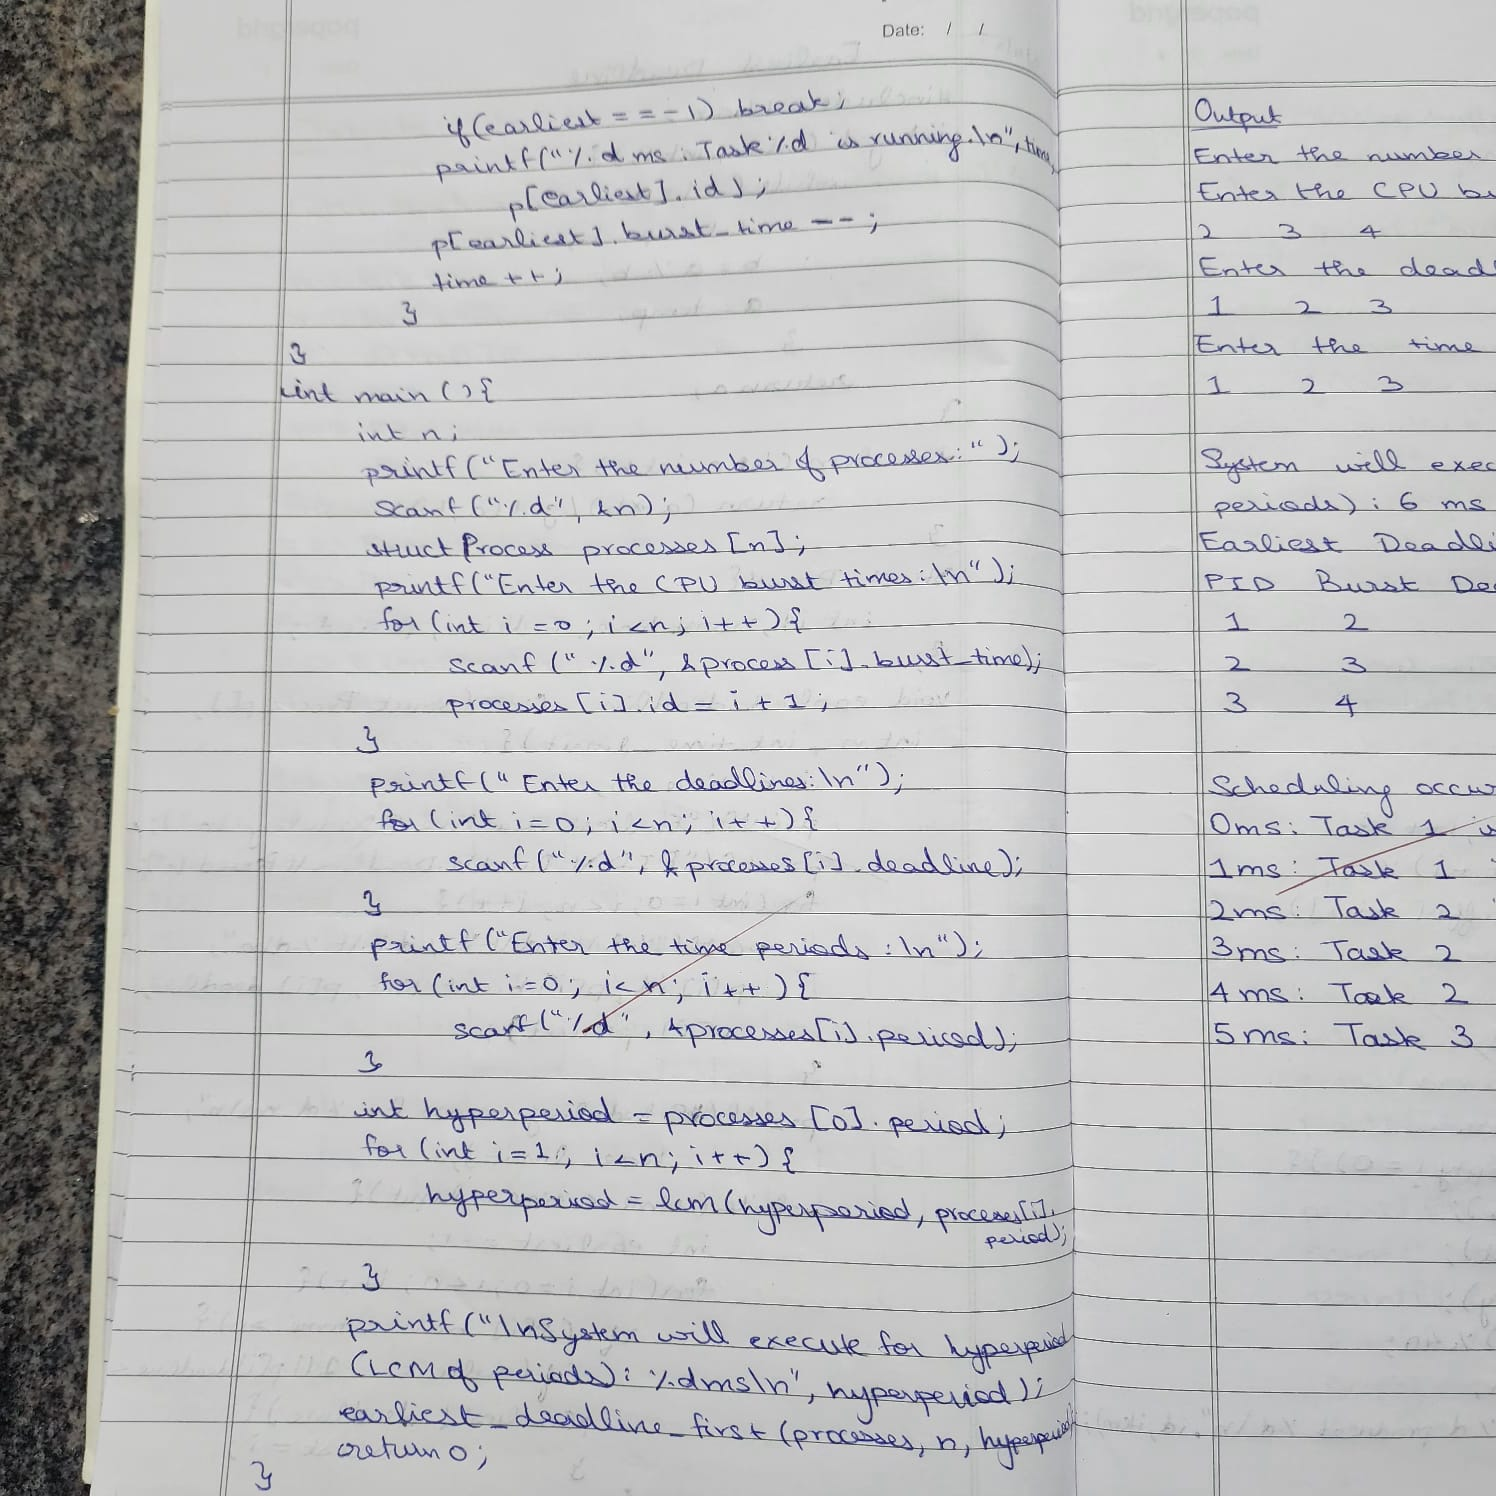 Date: / /
if(earliest == -1) break;
printf("%d ms : Task %d is running.\n", time,
p[earliest].id);
p[earliest].burst_time --;
time ++;
}
}
int main (){
int n;
printf("Enter the number of processes:");
scanf("%d", &n);
struct Process processes [n];
printf("Enter the CPU burst times:\n");
for (int i =0; i<n; i++){
scanf ("%d", &process [i].burst_time);
processes [i].id = i + 1;
}
printf("Enter the deadlines:\n");
for (int i=0; i<n; i++){
scanf("%d", &processes [i].deadline);
}
printf ("Enter the time periods :\n");
for (int i=0; i<n; i++){
scanf("%d", &processes[i].period);
}
int hyperperiod = processes [0].period;
for (int i=1; i<n; i++){
hyperperiod = lcm (hyperperiod, processes[i].
period);
}
printf ("\nSystem will execute for hyperperiod
(LCM of periods): %dms\n", hyperperiod);
earliest_deadline_first (processes, n, hyperperiod
return 0;
}
Output
Enter the number
Enter the CPU bu
2 3 4
Enter the deadl
1 2 3
Enter the time
1 2 3
System will exec
periods): 6 ms
Earliest Deadli
PID Burst De
1 2
2 3
3 4
Scheduling occur
0ms: Task 1 is
1ms: Task 1
2ms: Task 2
3ms: Task 2
4ms: Task 2
5ms: Task 3